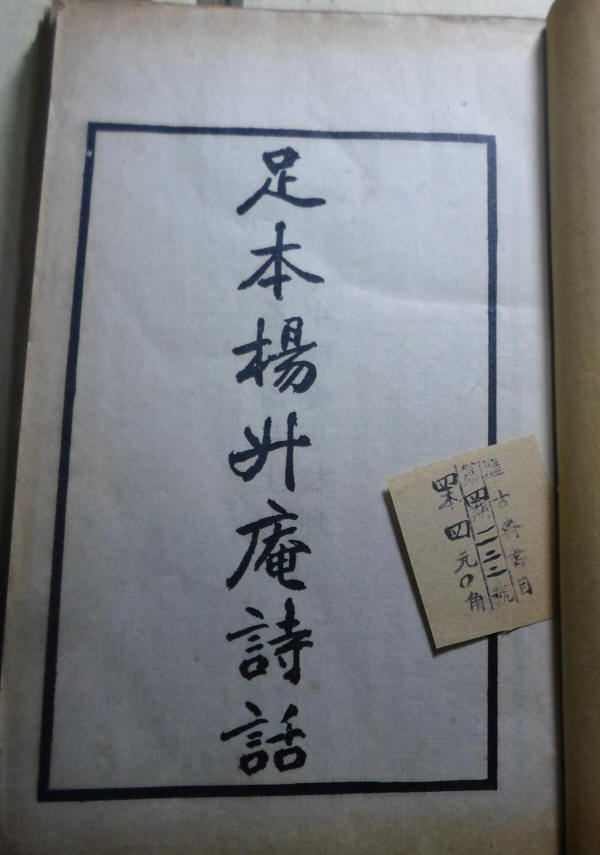 足本楊升庵詩話
古齋書目
第四期一二三號
四本四元〇角